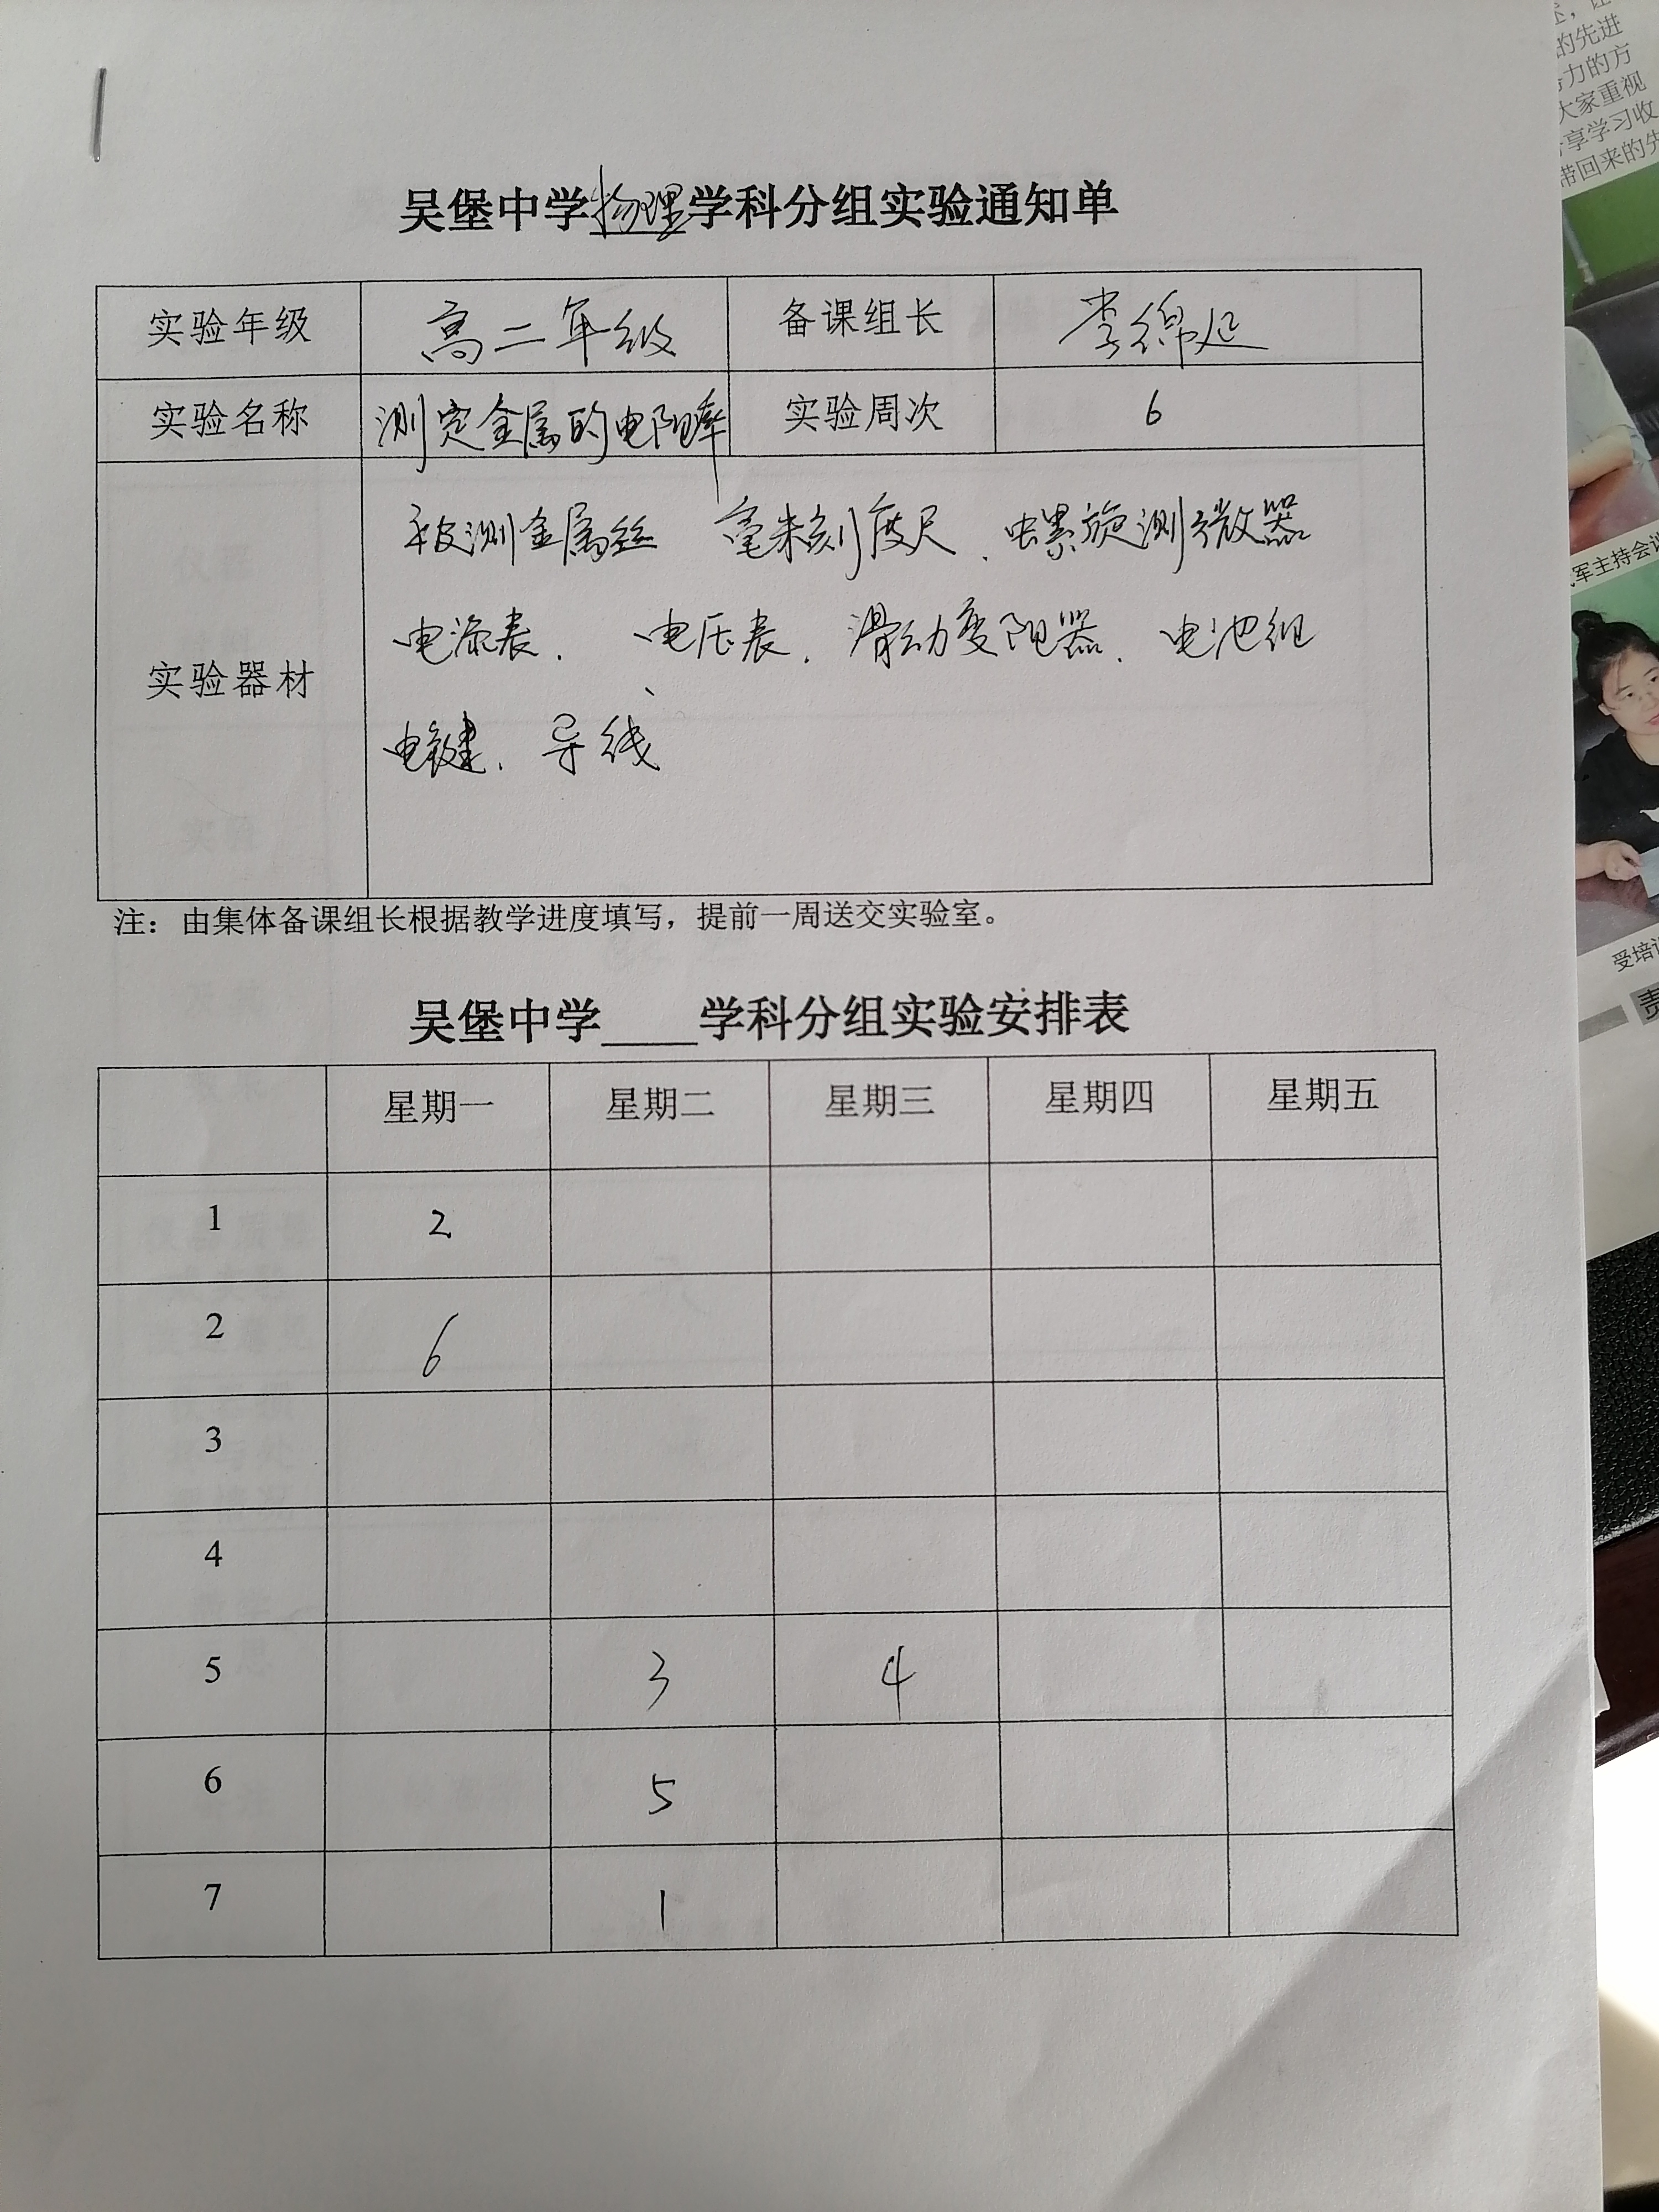 吴堡中学物理学科分组实验通知单
实验年级 高二年级 备课组长 李绵延
实验名称 测定金属的电阻率 实验周次 6
实验器材
被测金属丝 毫米刻度尺、螺旋测微器
电流表、电压表、滑动变阻器、电池组
电键、导线
注：由集体备课组长根据教学进度填写，提前一周送交实验室。
吴堡中学____学科分组实验安排表
星期一 星期二 星期三 星期四 星期五
1 2
2 6
3
4
5 3 4
6 5
7 1
的先进
力的方
大家重视
享学习收
带回来的先
军主持会议
受培训
责